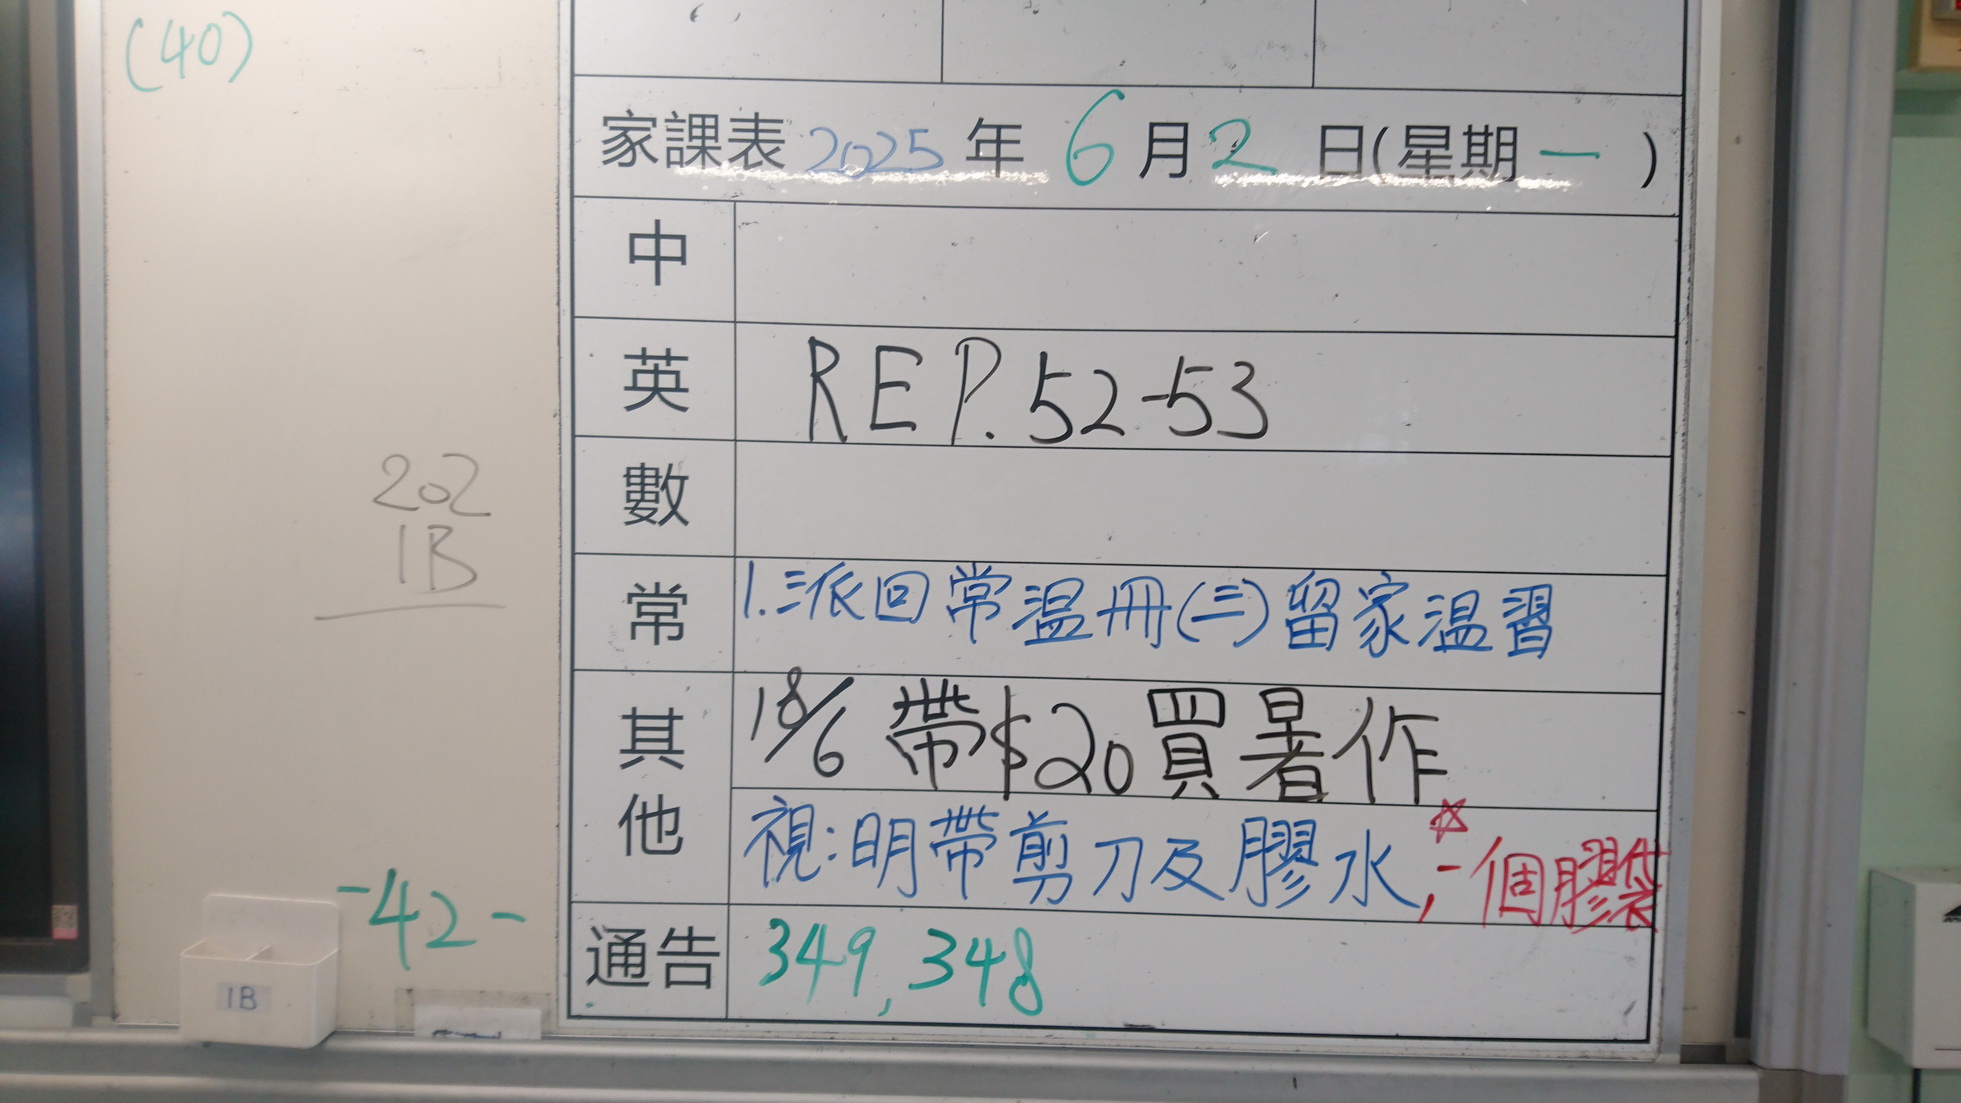 (40)
家課表 2025 年 6 月 2 日(星期 一 )
中
英 REP. 52-53
數
202
1B
常 1. 派回常溫冊(三)留家温習
其他
18/6 帶$20買暑作
視:明帶剪刀及膠水,一個膠袋
-42-
通告 349, 348
1B